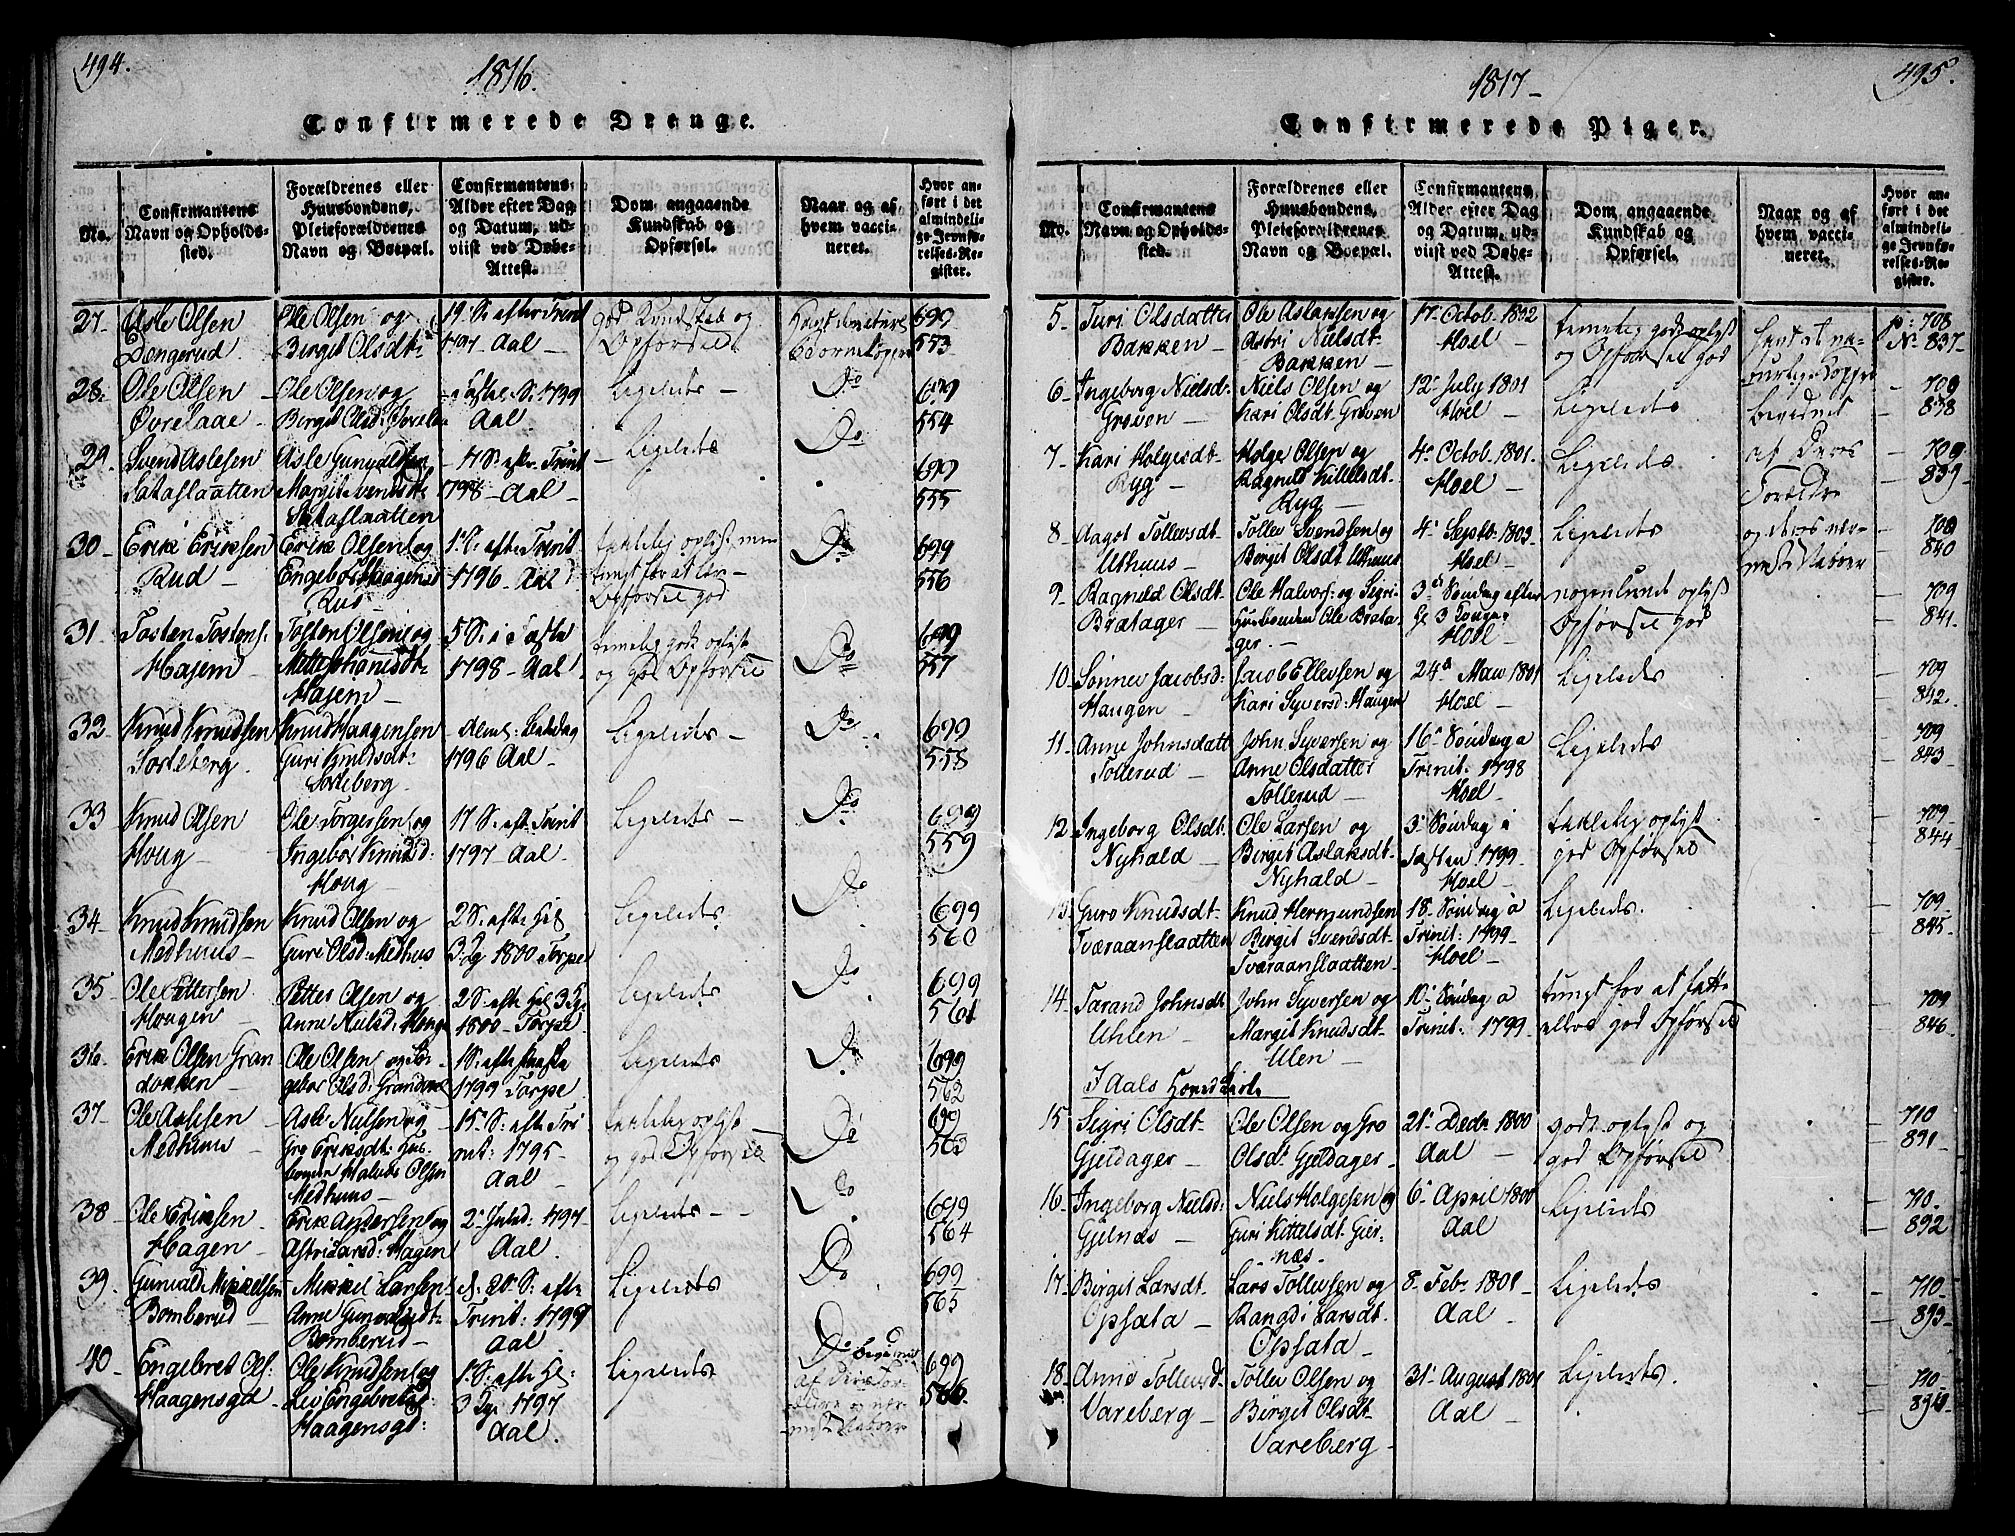 494.
1816.
Confirmerede Drenge.
No.
Confirmantens Navn og Opholdssted.
Forældrenes eller Huusbondens, Pleieforældrenes Navn og Boepæl.
Confirmantens Alder efter Dag og Datum, udviist ved Døbe-Attest.
Dom angaaende Kundskab og Opførsel.
Naar og af hvem vaccineret.
Hvor anført i det almindelige Jevnførelses-Register.
27 Asle Olsen Dengerud Ole Olsen og Birgit Olsdt: 19 S: efter Trinit 1797 Aal god Kundskab og Opførsel 699 553
28. Ole Olsen Øvrelaae Ole Olsen og Birgit Olsd: 1799 Aal Ligeledes Do 699 554
29. Svend Aslesen Sataslaatten Asle Gunvalsen Margit Svendsdt Sataslaatten 17 S: eftr Trinit 1798 Aal Ligeledes Do 699 555
30 Erik Eriksen Rud Erik Olsen og Engebor Haagensd Rud 1 S: efter Trinit 1796 Aal taalelig oplyst, men Opførsel god Do 699 556
31 Tosten Tostens: Hajem Tosten Olsen og Mette Johannsdt Hajem 5 S: i Faste 1798 Aal temelig godt oplyst og god Opførsel Do 699 557
32 Knud Knudsen Sorteberg Knud Haagensen Guri Knudsdt: Sorteberg 1796 Aal Ligeledes Do 699 558
33 Knud Olsen Houg Ole Torgersen og Ingebor Knudsd: Houg 17 S: eft. Trinit 1797 Aal Ligeledes Do 699 559
34 Knud Knudsen Medhuus Knud Olsen og Guri Olsd: Medhuus 2 S: efte Hel 3 Kg 1800 Torpe Ligeledes Do 699 560
35 Ole Pettersen Hougen Petter Olsen og Anne Nielsd: Houge 2 S: efte Hel 3 Kgr 1800 Torpe Ligeledes Do 699 561
36 Erik Olsen Grandokken Ole Olsen og Ingebor Olsd: 1 S: efte Paaske 1799 Torpe Ligeledes Do 699 562
37 Ole Aslesen Medhuus Asle Nielsen og Gro Eriksdt: Medhuus 15 S: efte Trinit: 1795 Aal taalelig oplyst og god Opførsel Do 699 563
38 Ole Eriksen Hagen Erik Andersen og Astri Larsd: Hagen 2 Juled: 1797 Aal Ligeledes Do 699 564
39. Gunvald Mikkelsen Bomberud Mikkel Larsen Anne Gunvalsdt Bomberud 20 S: efte Trinit: 1799 Aal Ligeledes Do 699 565
40 Engebret Ols: Haagensgd Ole Knudsen og Liv Engebretsd: Haagensgd: 1 S: efte Hel: 3 Kgr 1797 Aal. Ligeledes Do bevidnet af deres Forældre og nærmeste Naboer 699 566
495.
1817
Confirmerede Piger.
No.
Confirmantens Navn og Opholdssted.
Forældrenes eller Huusbondens, Pleieforældrenes Navn og Boepæl.
Confirmantens Alder efter Dag og Datum, udviist ved Døbe-Attest.
Dom angaaende Kundskab og Opførsel.
Naar og af hvem vaccineret.
Hvor anført i det almindelige Jevnførelses-Register.
5 Turi Olsdatter Bakken Ole Aslansen og Astri Nielsdt Bakken 17 Octob. 1802 Hoel temelig godt oplyst og Opførsel god p: 708 No 837
6 Ingeborg Nielsd: Grøven Niels Olsen og Kari Olsdt Grøven 12 July 1801 Hoel Ligeledes bevidnet 708 838
7 Kari Holgersdt Ryg Holger Olsen og Ragnild Killelsdt. Ryg 4 Octob. 1801. Hoel Ligeledes af deres Forældre 709 839
8 Aagot Tollevsdt Uthuus Tollev Svendsen og Birgit Olsdt Uthuus 4 Septb: 1803 Hoel Ligeledes og deres nærmeste Naboer 709 840
9 Ragnild Olsdt Bratager Ole Halvors: og Sigri Huusbonden Ole Bratager. 3d Søndag efter Hl 3 Konger Hoel nogenlunde oplyst Opførsel god 709 841.
10 Sønnev Jacobsd: Haugen Jacob Ellevsen og Kari Syversd: Haugen 24d Maii 1801 Hoel Ligeledes 709 842.
11 Anne Johnsdatt Tollerud John Syversen og Anne Olsdatter Tollerud 16 Søndag a Trinit: 1798 Hoel Ligeledes 709 843
12 Ingeborg Olsdt. Nyhald Ole Larsen og Birgit Aslaksdt. Nyhald 3 Søndag i Fasten 1799 Hoel taalelig oplyst god Opførsel 709 844
13 Guro Knudsdt Tværaanslaatten Knud Hermundsen Birgit Svendsdt Tværaanslaatten 18 Søndag a Trinit: 1799 Hoel Ligeledes. 709 845
14 Tarand Johnsdt Uhlen John Syversen og Margit Knudsdt Ulen 10 Søndag a Trinit: 1799 tungt for at fatte ellers god Opførsel 709 846
I Aals Hoved Kirke
15 Sigri Olsdt Gjeldager Ole Olsen og Gro Olsdt Gjeldager 21 Decbr 1800 Aal godt oplyst og god Opførsel 710 891
16 Ingeborg Nielsd: Gjelnæs Niels Holgesen og Guri Kittelsdt. 6 April 1800 Aal Ligeledes 710 892
17 Birgit Larsdt. Opsata Lars Tollevsen og Rangdi Larsdt. Opsata 8 Febr 1801 Aal Ligeledes 710 893
18 Anne Tollevsd Vareberg Tollev Olsen og Birgit Olsdt Vareberg 31 August 1801 Aal Ligeledes. 710 894